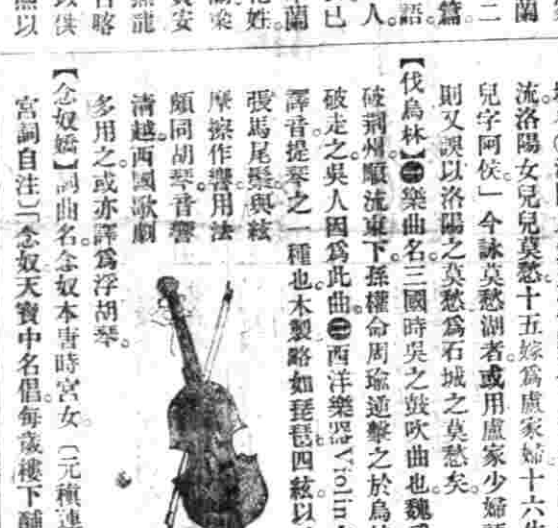 蘭
二
篇
語
人
已
蘭
花姓
黃安
燕龍
召略
以供
無以
流洛陽女兒兒莫愁十五嫁爲盧家婦十六生
兒字阿侯」今詠莫愁湖者或用盧家少婦
則又誤以洛陽之莫愁爲石城之莫愁矣。
【伐烏林】㊀樂曲名。三國時吳之鼓吹曲也。魏
破荆州。順流東下。孫權命周瑜逆擊之於烏
破走之。吳人因爲此曲。㊁西洋樂器Violin
譯音。提琴之一種也。木製。略如琵琶。四絃。以
張馬尾鬃。與絃
摩擦作響。用法
頗同胡琴。音響
清越。西國歌劇
多用之。或亦譯爲浮胡琴。
【念奴嬌】詞曲名。念奴本唐時宮女。〔元稹連
宮詞自注〕「念奴天寶中名倡。每歲樓下酺